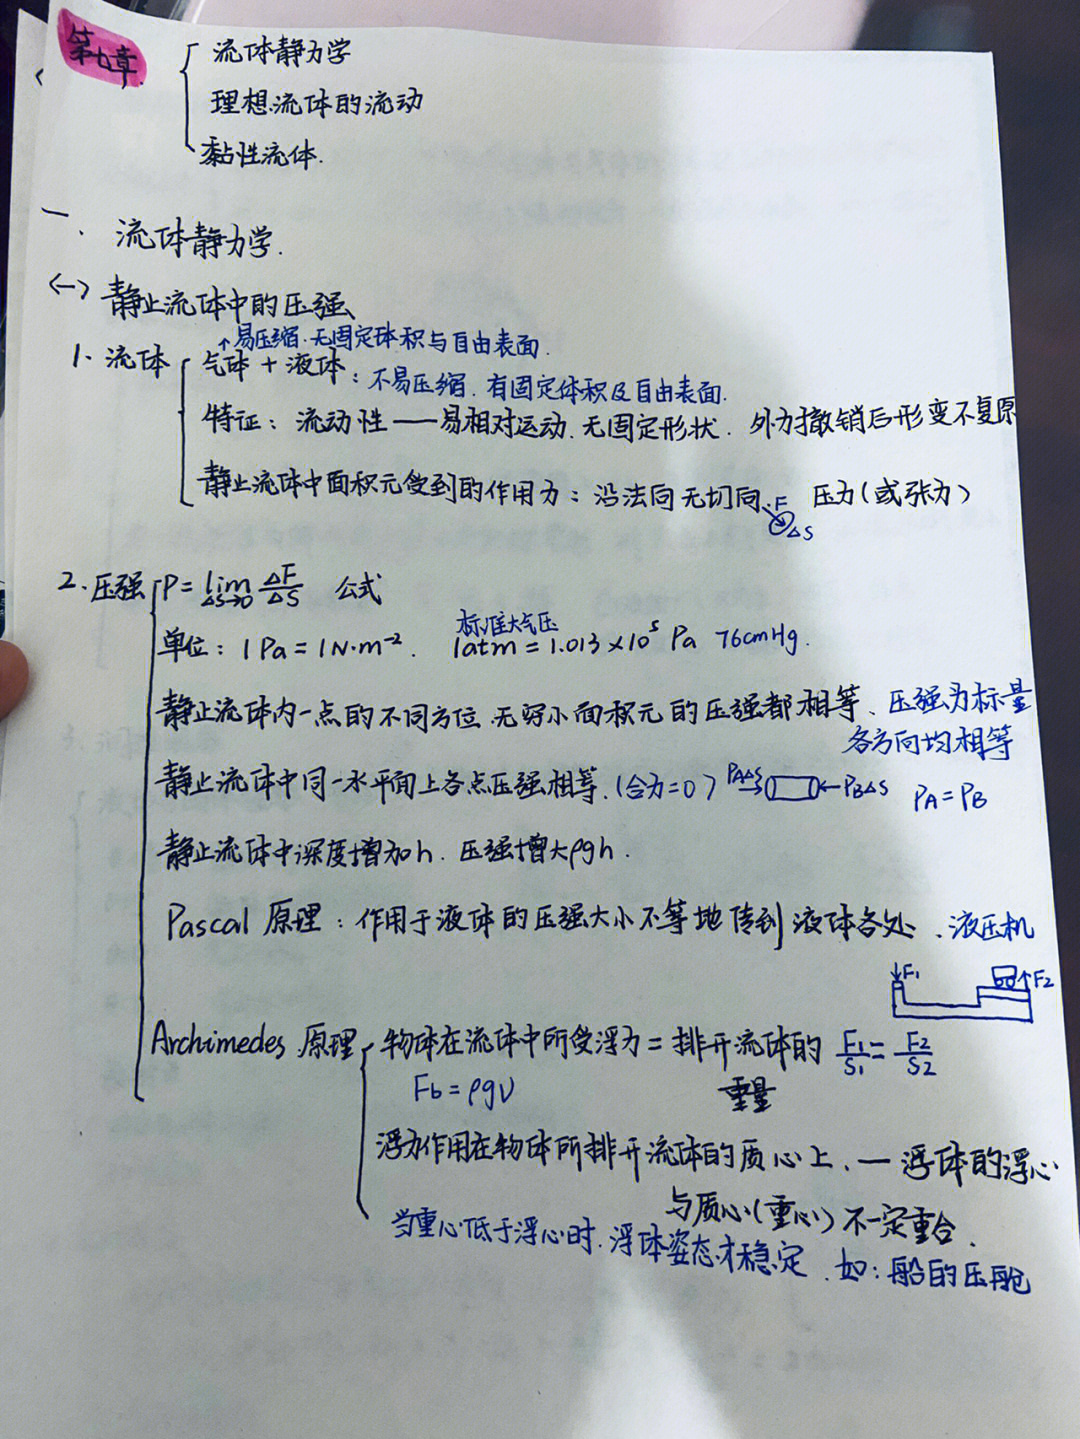 第九章.
流体静力学
理想流体的流动
黏性流体.
一、流体静力学.
<一> 静止流体中的压强
↑易压缩.无固定体积与自由表面.
1. 流体 气体 + 液体: 不易压缩. 有固定体积及自由表面.
特征: 流动性——易相对运动.无固定形状. 外力撤销后形变不复原
静止流体中面积元受到的作用力: 沿法向无切向. F ΔS 压力(或张力)
2. 压强 P = lim ΔS→0 ΔF/ΔS 公式
标准大气压
单位: 1Pa = 1N·m⁻². 1atm = 1.013×10⁵ Pa 76cmHg.
静止流体内一点的不同方位无穷小面积元的压强都相等、压强为标量
各方向均相等
静止流体中同一水平面上各点压强相等.(合力=0) PAΔS → ← PBΔS PA = PB
静止流体中深度增加h. 压强增大ρgh.
Pascal 原理: 作用于液体的压强大小不等地传到液体各处. 液压机
↓F₁ ↑F₂
Archimedes 原理 物体在流体中所受浮力 = 排开流体的 F₁/S₁ = F₂/S₂
Fb = ρgV 重量
浮力作用在物体所排开流体的质心上. — 浮体的浮心
与质心(重心)不一定重合.
当重心低于浮心时. 浮体姿态才稳定. 如: 船的压舱